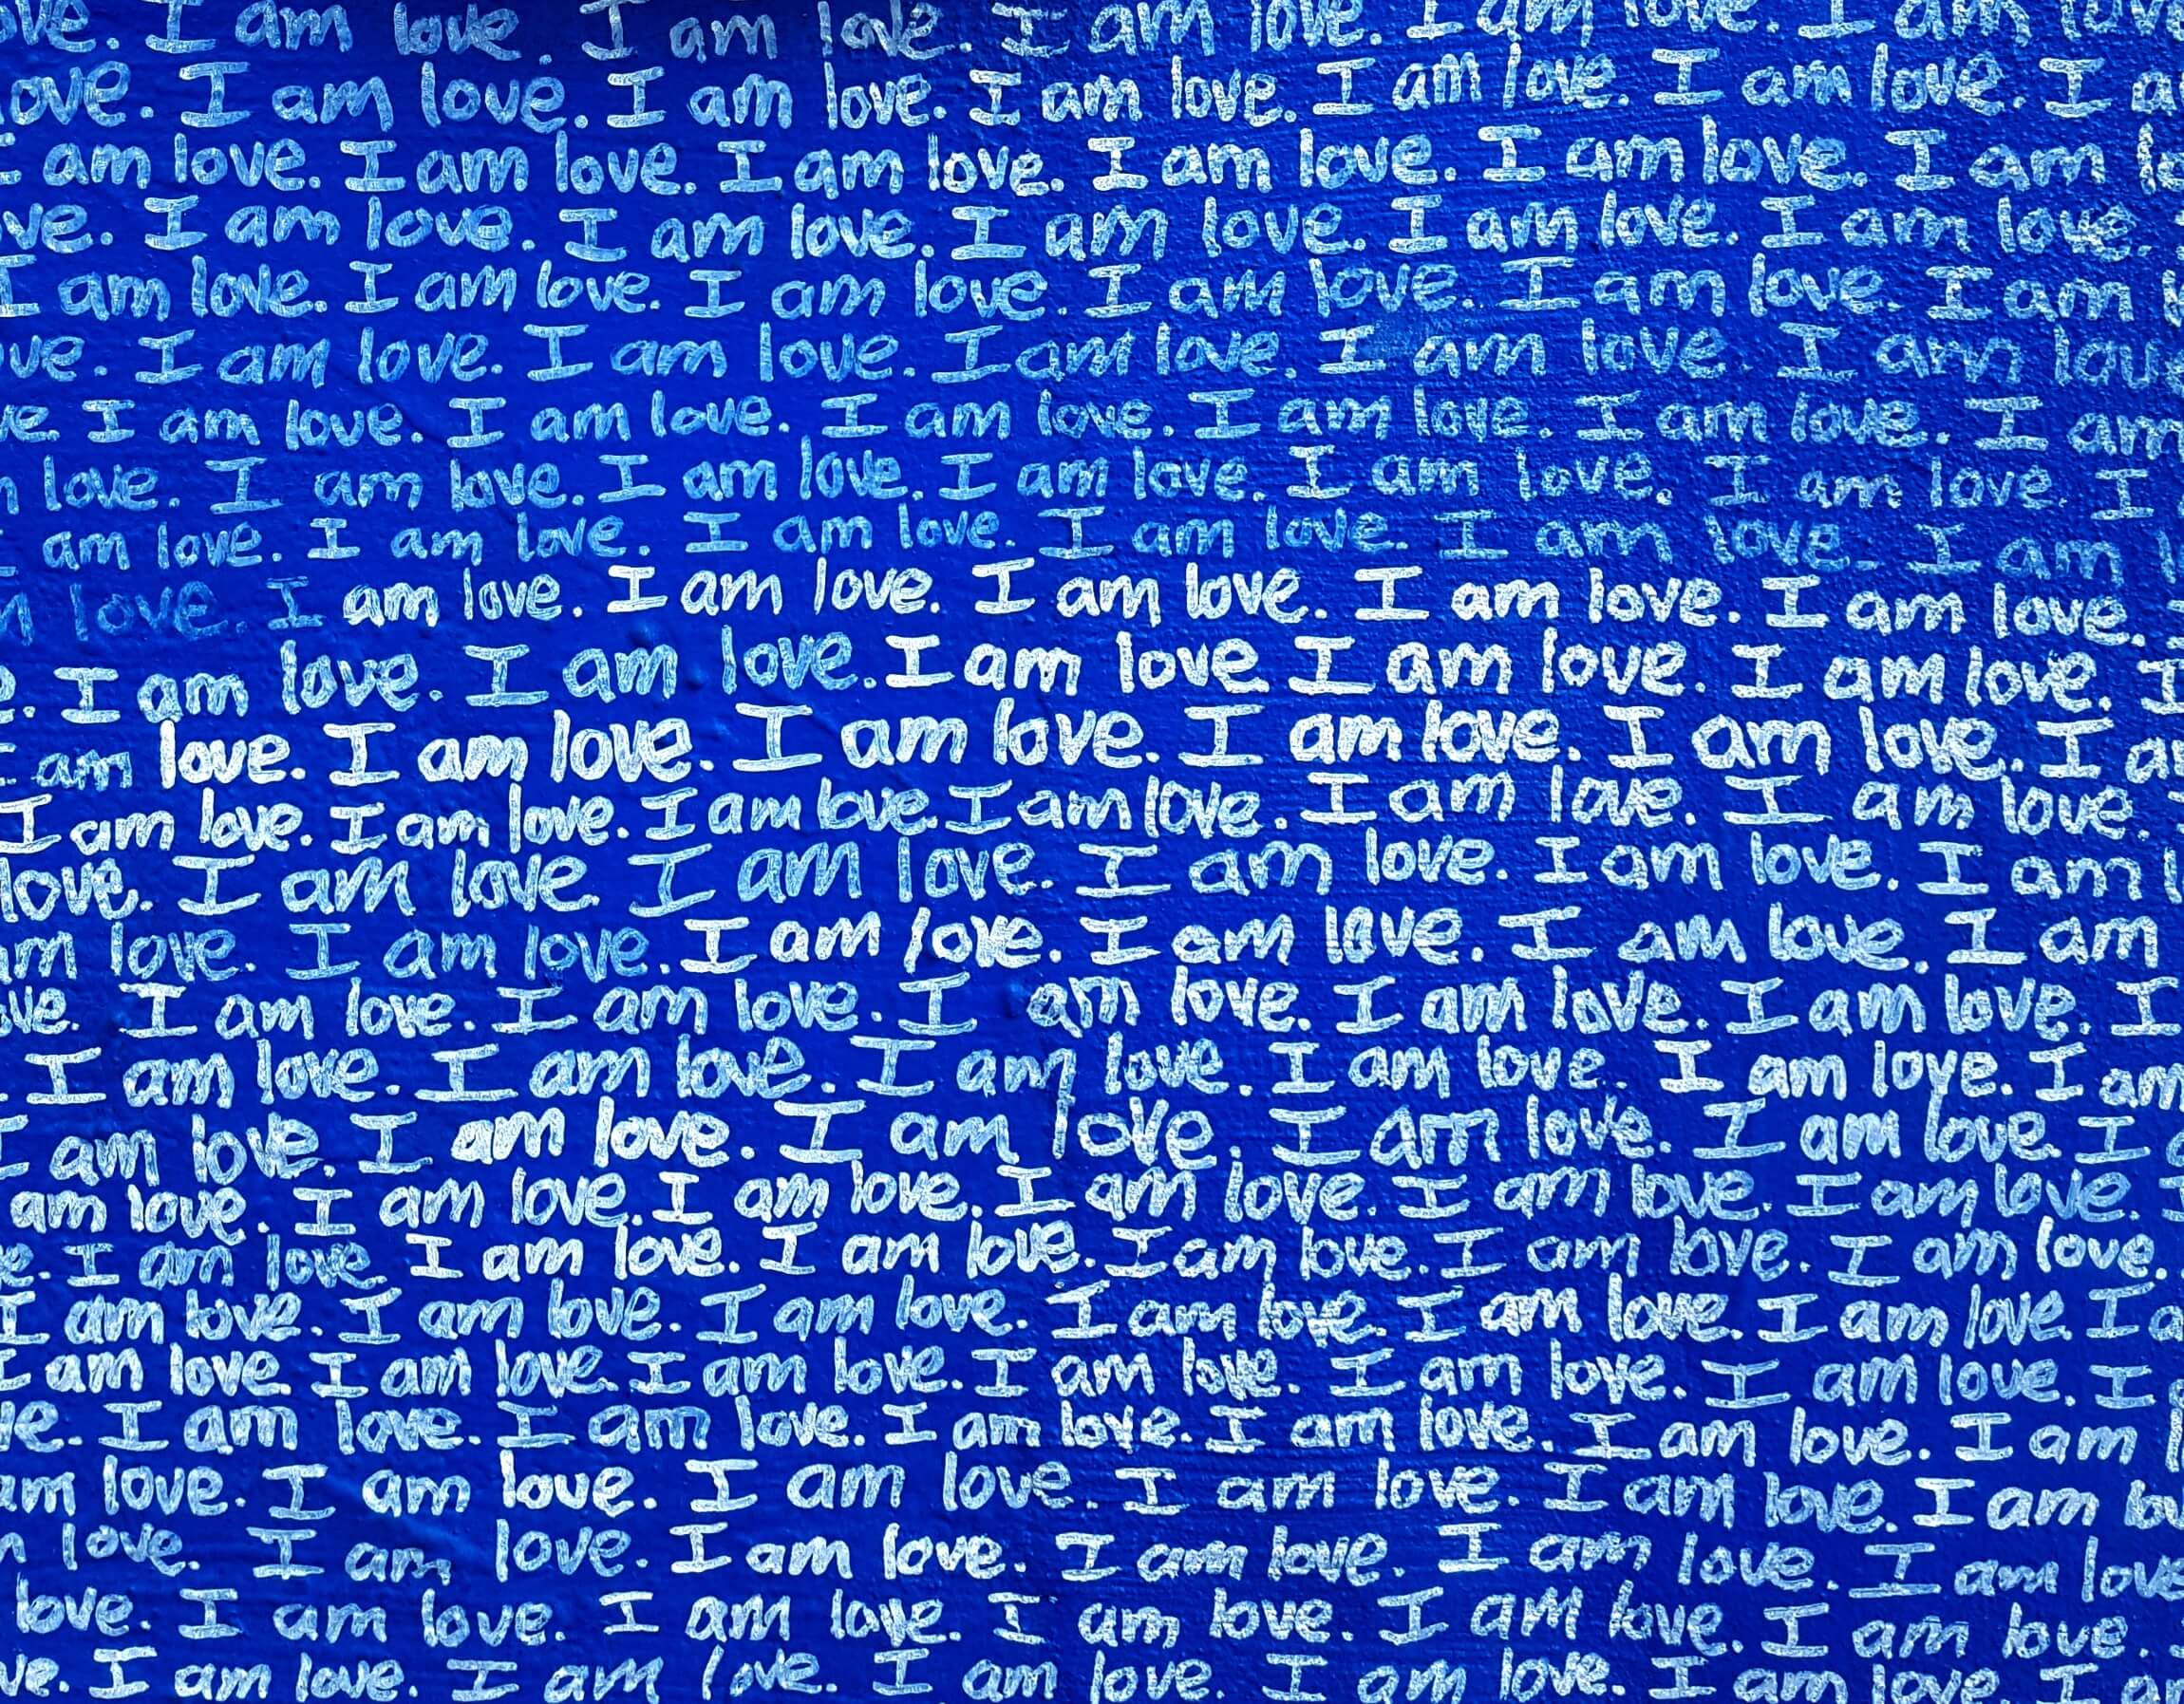 ove. I am love. I am love. I am love. I am love. I am love
ove. I am love. I am love. I am love. I am love. I am love. I a
I am love. I am love. I am love. I am love. I am love. I am lo
ve. I am love. I am love. I am love. I am love. I am love.
I am love. I am love. I am love. I am love. I am love. I am l
ove. I am love. I am love. I am love. I am love. I am love
ve. I am love. I am love. I am love. I am love. I am love. I am
m love. I am love. I am love. I am love. I am love. I am love. I
I am love. I am love. I am love. I am love. I am love. I am l
m love. I am love. I am love. I am love. I am love. I am love.
e. I am love. I am love. I am love I am love. I am love. I
I am love. I am love. I am love. I am love. I am love. I a
I am love. I am love. I am love. I am love. I am love. I am love.
love. I am love. I am love. I am love. I am love. I am l
am love. I am love. I am love. I am love. I am love. I am
ove. I am love. I am love. I am love. I am love. I am love. I
. I am love. I am love. I am love. I am love. I am love. I am
I am love. I am love. I am love. I am love. I am love. I a
am love. I am love. I am love. I am love. I am love. I am love. I
e. I am love. I am love. I am love. I am love. I am love. I am love.
I am love. I am love. I am love. I am love. I am love. I am love. I a
I am love. I am love. I am love. I am love. I am love. I am love. I
ve. I am love. I am love. I am love. I am love. I am love. I am l
am love. I am love. I am love. I am love. I am love. I am lov
m love. I am love. I am love. I am love. I am love. I am love
love. I am love. I am love. I am love. I am love. I am love.
ve. I am love. I am love. I am love. I am love. I am love. I a